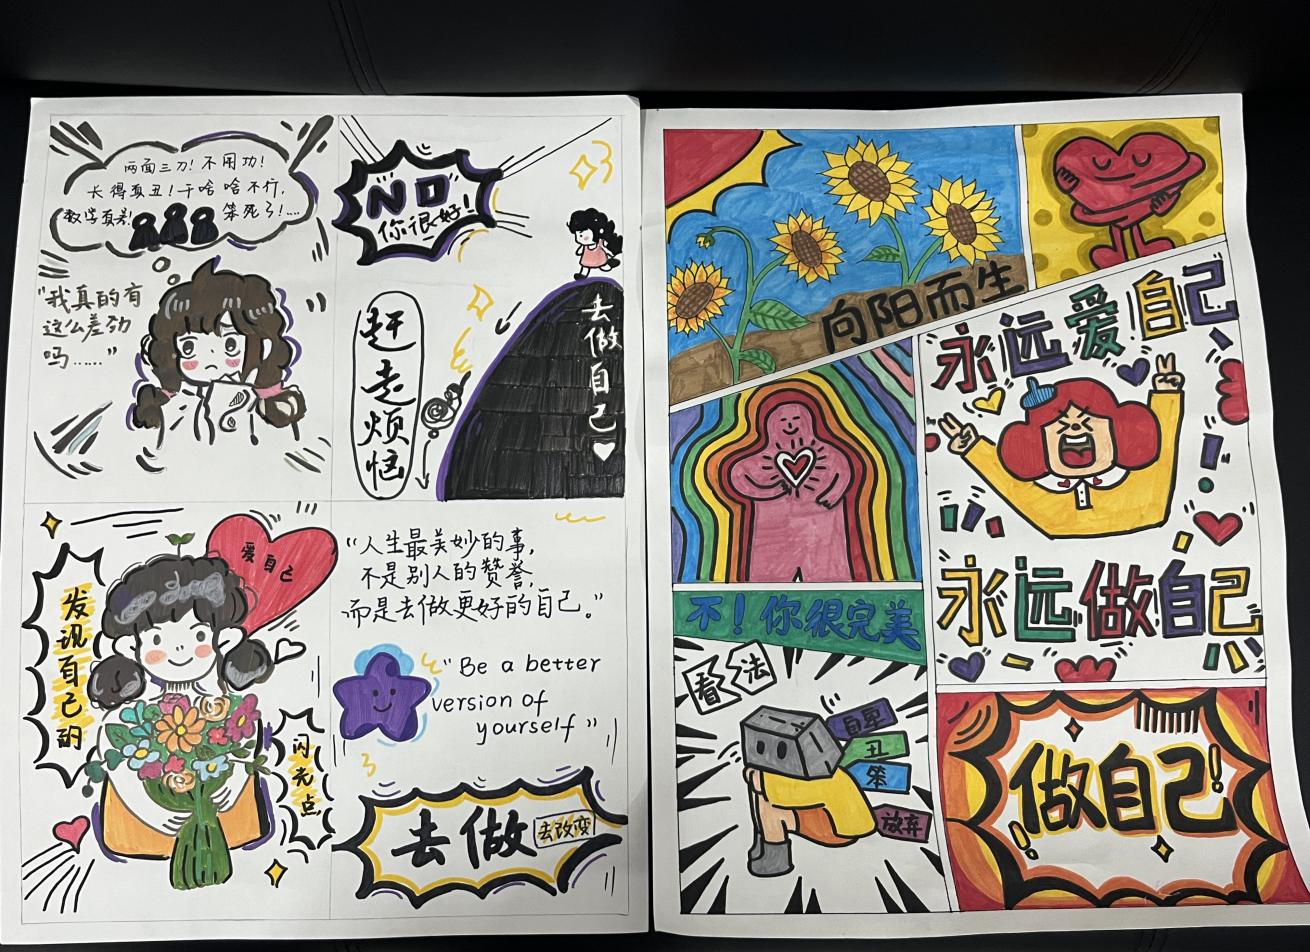 两面三刀！不用功！
长得真丑！干啥啥不行，
数学真差！ 笨死了！...
"我真的有
这么差劲
吗……"
NO
你很好！
赶走烦恼
去做自己
爱自己
发现自己的
闪光点
"人生最美妙的事，
不是别人的赞誉，
而是去做更好的自己。"
"Be a better
version of
yourself"
去做
去改变
向阳而生
永远爱自己
永远做自己
不！你很完美
看法
自卑
丑
笨
放弃
做自己！